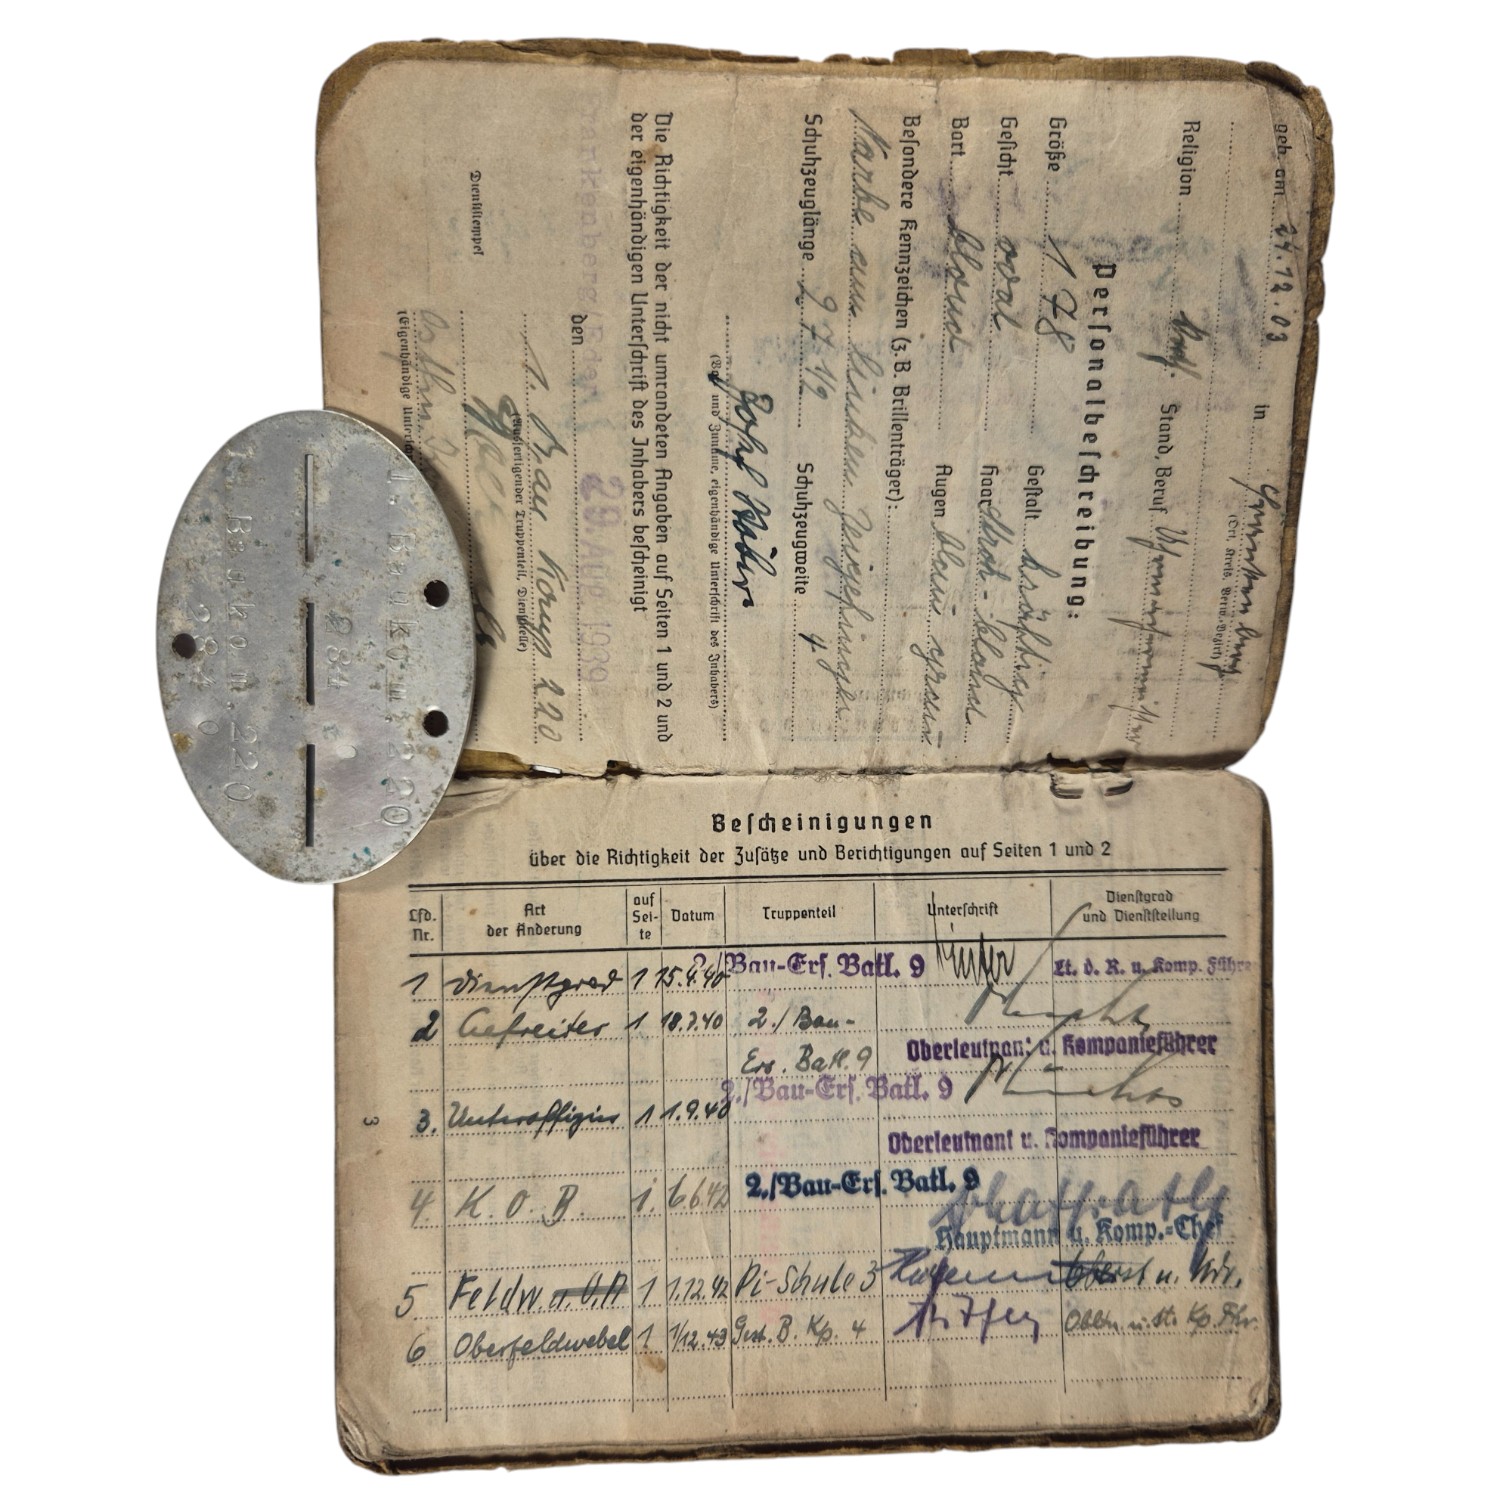 geb. am 24.12.03 in
(Ort, Kreis, Verw.-Bezirk)
Religion Stand, Beruf
Personalbeschreibung:
Größe 178 Gestalt kräftig
Gesicht oval Haar blond
Bart blond Augen blau grau
Besondere Kennzeichen (z.B. Brillenträger):
Narbe am linken Zeigefinger
Schuhzeuglänge 27 1/2 Schuhzeugweite 4
(Vor- und Zuname, eigenhändige Unterschrift des Inhabers)
Die Richtigkeit der nicht umrandeten Angaben auf Seiten 1 und 2 und
der eigenhändigen Unterschrift des Inhabers bescheinigt
den 29. Aug. 1939
1. Bau Komp 220
(Ausfertigender Truppenteil, Dienststelle)
(Eigenhändige Unter
Dienststempel
1. Bau Ko m. 220
284
1. Bau Ko m. 220
284 0
Bescheinigungen
über die Richtigkeit der Zusätze und Berichtigungen auf Seiten 1 und 2
Lfd. Nr. Art der Änderung auf Sei- te Datum Truppenteil Unterschrift Dienstgrad und Dienststellung
1 Dienstgrad 1 15.4.40 2./Bau-Ers. Batl. 9 Lt. d. R. u. Komp. Führer
2 Gefreiter 1 18.7.40 2./ Bau-
Ers. Batl. 9 Oberleutnant u. Kompanieführer
3. Unteroffizier 1 1.9.40 2./Bau-Ers. Batl. 9
Oberleutnant u. Kompanieführer
4. K. O. B. 1. 6.6.42 2./Bau-Ers. Batl. 9
Hauptmann u. Komp.-Chef
5 Feldw. u. O.A 1 1.12.42 Pi-Schule 3 Oberst u. Kdr.
6 Oberfeldwebel 1 1/12.43 Gest. B. Kp. 4 Obltn. u. st. Kp. Fhr.
3